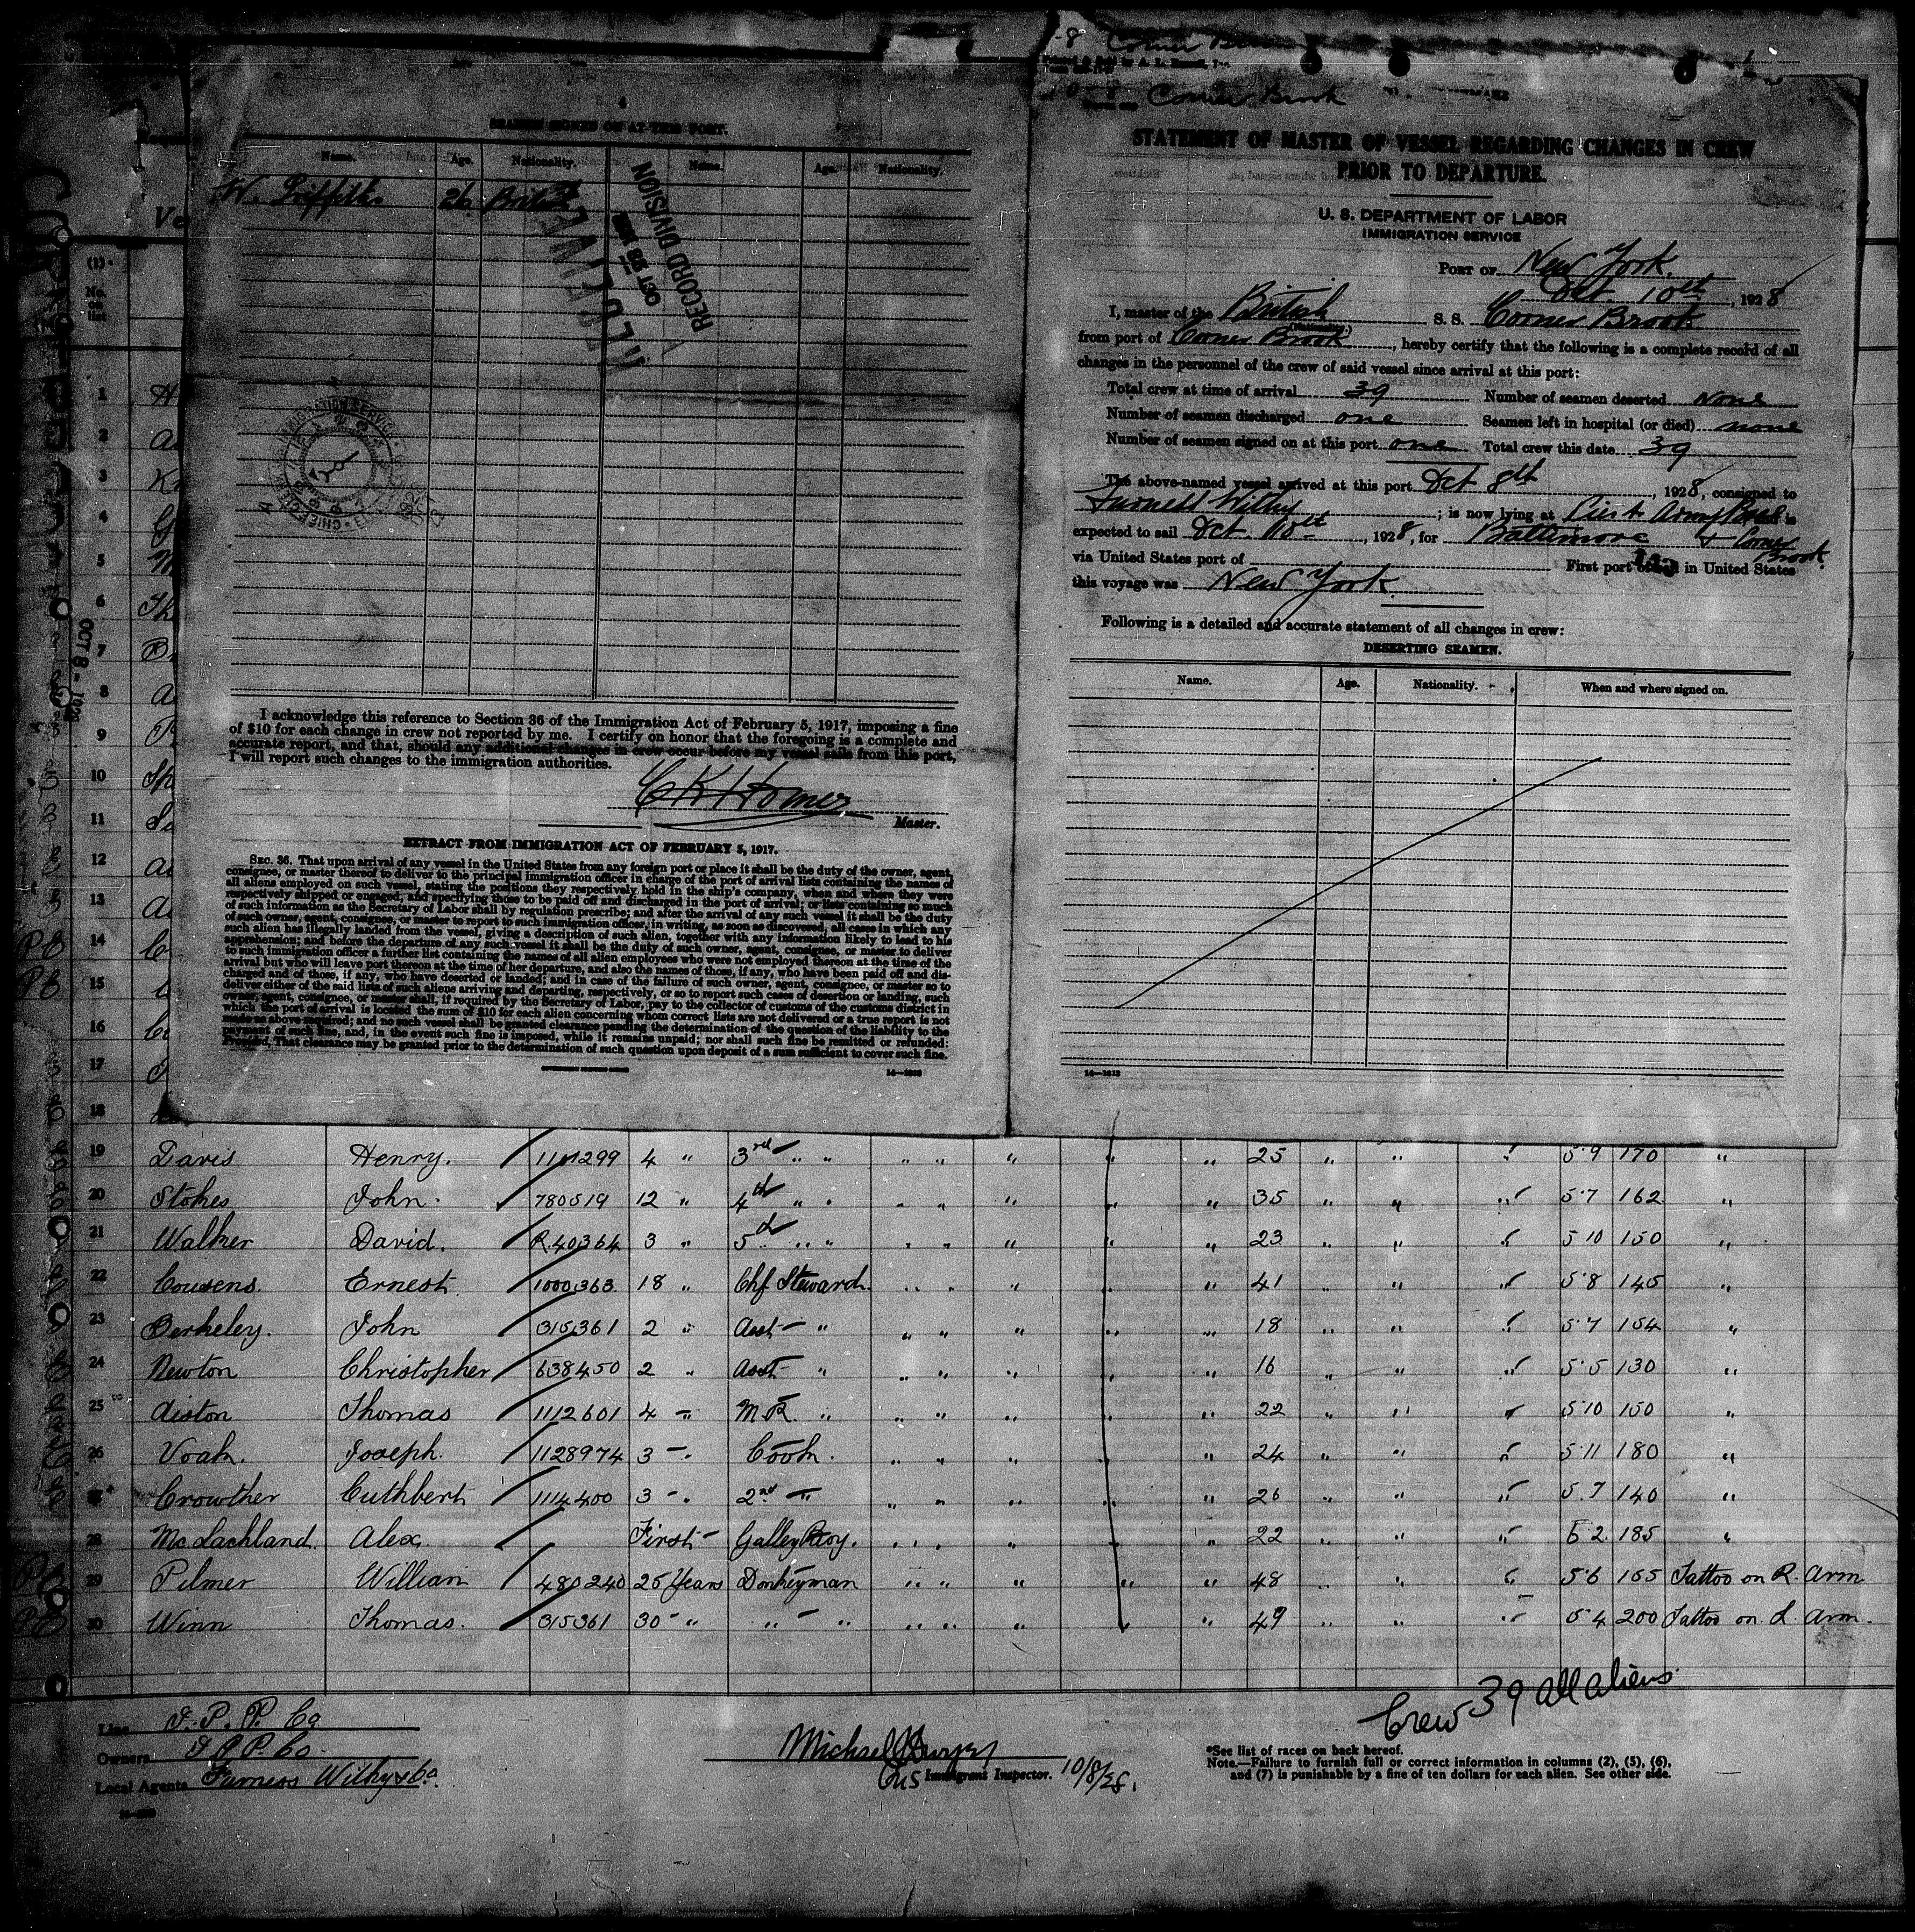 SEAMEN SIGNED ON AT THIS PORT.
Name. Age. Nationality. Name. Age. Nationality.
W. Griffiths 26 British
RECEIVED
OCT 23 1928
RECORD DIVISION
I acknowledge this reference to Section 36 of the Immigration Act of February 5, 1917, imposing a fine
of $10 for each change in crew not reported by me. I certify on honor that the foregoing is a complete and
accurate report, and that, should any additional changes in crew occur before my vessel sails from this port,
I will report such changes to the immigration authorities.
C K Homer
Master.
EXTRACT FROM IMMIGRATION ACT OF FEBRUARY 5, 1917.
SEC. 36. That upon arrival of any vessel in the United States from any foreign port or place it shall be the duty of the owner, agent,
consignee, or master thereof to deliver to the principal immigration officer in charge of the port of arrival lists containing the names of
all aliens employed on such vessel, stating the positions they respectively hold in the ship's company, when and where they were
respectively shipped or engaged, and specifying those to be paid off and discharged in the port of arrival; or lists containing so much
of such information as the Secretary of Labor shall by regulation prescribe; and after the arrival of any such vessel it shall be the duty
of such owner, agent, consignee, or master to report to such immigration officer, in writing, as soon as discovered, all cases in which any
such alien has illegally landed from the vessel, giving a description of such alien, together with any information likely to lead to his
apprehension; and before the departure of any such vessel it shall be the duty of such owner, agent, consignee, or master to deliver
to such immigration officer a further list containing the names of all alien employees who were not employed thereon at the time of the
arrival but who will leave port thereon at the time of her departure, and also the names of those, if any, who have been paid off and dis-
charged and of those, if any, who have deserted or landed; and in case of the failure of such owner, agent, consignee, or master so to
deliver either of the said lists of such aliens arriving and departing, respectively, or so to report such cases of desertion or landing, such
owner, agent, consignee, or master shall, if required by the Secretary of Labor, pay to the collector of customs of the customs district in
which the port of arrival is located the sum of $10 for each alien concerning whom correct lists are not delivered or a true report is not
made as above required; and no such vessel shall be granted clearance pending the determination of the question of the liability to the
payment of such fine, and, in the event such fine is imposed, while it remains unpaid; nor shall such fine be remitted or refunded:
Provided, That clearance may be granted prior to the determination of such question upon deposit of a sum sufficient to cover such fine.
Corner Brook
STATEMENT OF MASTER OF VESSEL REGARDING CHANGES IN CREW
PRIOR TO DEPARTURE.
U. S. DEPARTMENT OF LABOR
IMMIGRATION SERVICE
PORT OF New York.
Oct. 10th, 1928
I, master of the British S. S. Corner Brook
(Nationality.)
from port of Corner Brook, hereby certify that the following is a complete record of all
changes in the personnel of the crew of said vessel since arrival at this port:
Total crew at time of arrival 39 Number of seamen deserted None
Number of seamen discharged one Seamen left in hospital (or died) none
Number of seamen signed on at this port one Total crew this date 39
The above-named vessel arrived at this port Oct 8th, 1928, consigned to
Furness Withy; is now lying at Pier 4 Army Base and is
expected to sail Oct. 10th, 1928, for Baltimore & Corner Brook.
via United States port of First port of call in United States
this voyage was New York.
Following is a detailed and accurate statement of all changes in crew:
DESERTING SEAMEN.
Name. Age. Nationality. When and where signed on.
(1)
No. on list
OCT 8 - 1928
1
2
3
4
5
6
7
8
9
10
11
12
13
14
15
16
17
18
19 Davis Henry. 1101299 4 " 3rd " " " " " " " 25 " " " 5·9 170 "
20 Stokes John. 780519 12 " 4th " " " " " " " 35 " " " 5·7 162 "
21 Walker David. R.40364 3 " 5th " " " " " " " 23 " " " 5 10 150 "
22 Cousens. Ernest. 1000363 18 " Chf Steward. " " " " " 41 " " " 5·8 145 "
23 Berkeley. John 315361 2 " Asst " " " " " " 18 " " " 5·7 154 "
24 Newton Christopher 638450 2 " Asst " " " " " " 16 " " " 5·5 130 "
25 Aiston Thomas 1112601 4 " M.R. " " " " " " 22 " " " 5·10 150 "
26 Voak. Joseph. 1128974 3 " Cook. " " " " " 24 " " " 5·11 180 "
27 Crowther Cuthbert 1114400 3 " 2nd " " " " " " 26 " " " 5.7 140 "
28 McLachland. Alex. First Galley Boy. " " " " " 22 " " " 5 2. 185 "
29 Pilmer William 480240 25 Years Donkeyman " " " " " 48 " " " 5·6 165 Tattoo on R. Arm
30 Winn Thomas. 315361 30 " " " " " " " " 49 " " " 5·4 200 Tattoo on L. Arm.
Crew 39 all aliens
Line I. P. P. Co
Owners I P P. Co.
Local Agents Furness Withy & Co.
Immigrant Inspector. 10/8/28.
*See list of races on back hereof.
Note.—Failure to furnish full or correct information in columns (2), (5), (6),
and (7) is punishable by a fine of ten dollars for each alien. See other side.